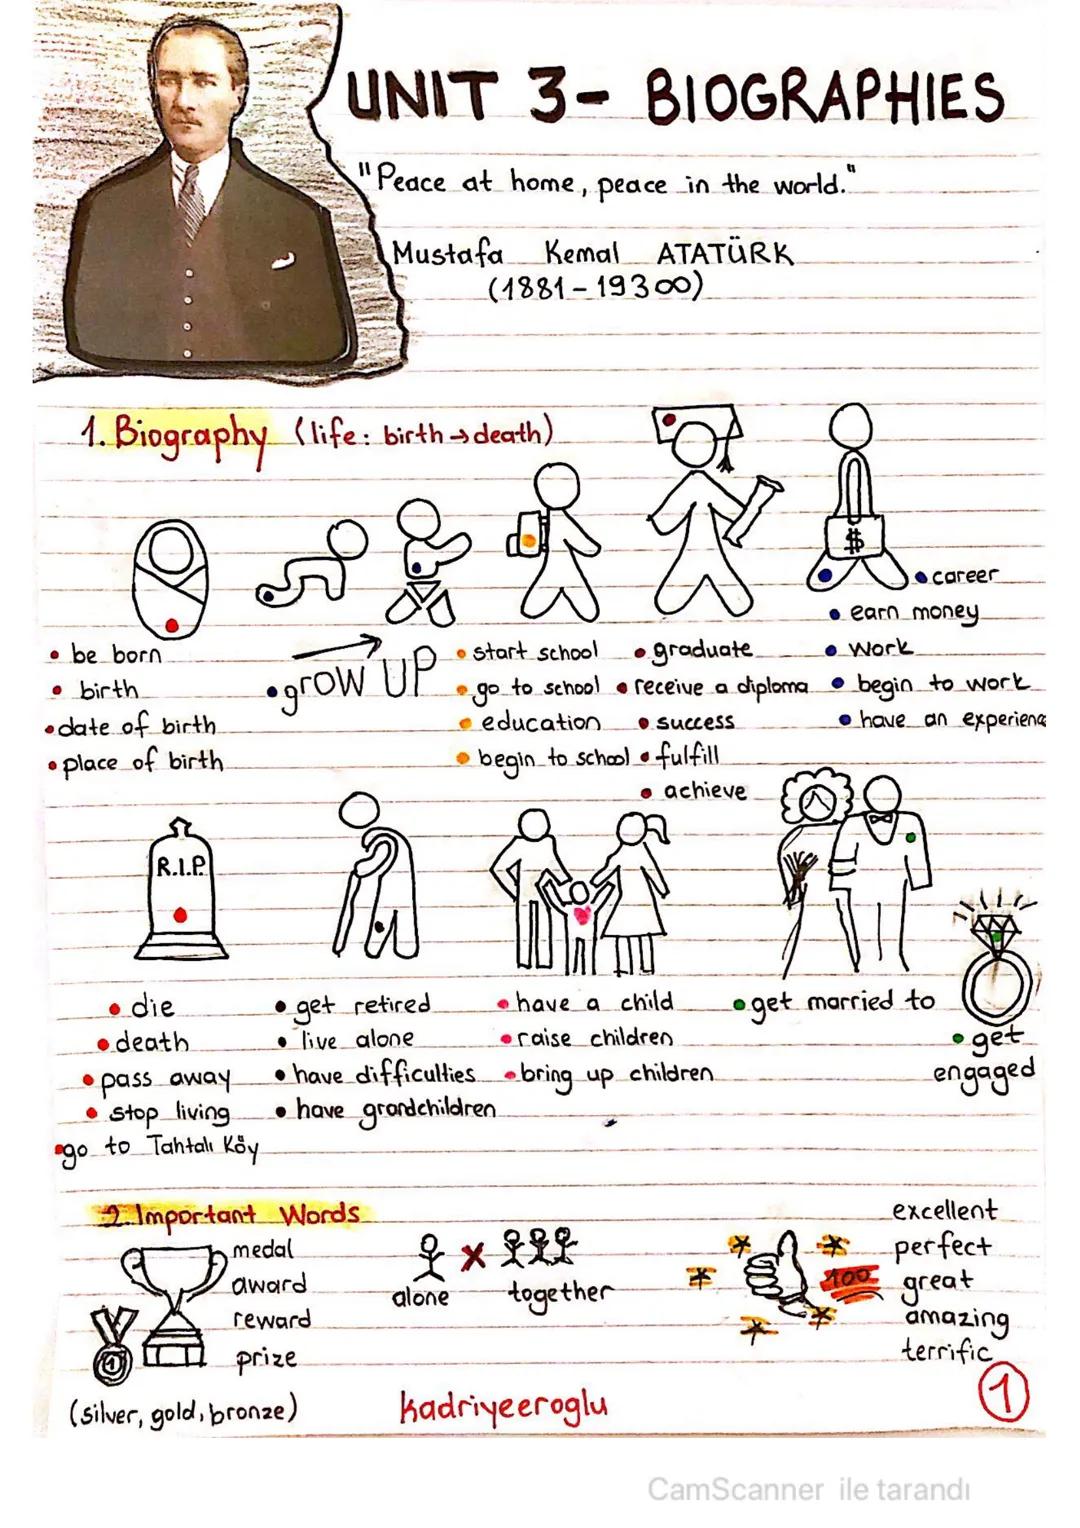 UNIT 3- BIOGRAPHIES
"Peace at home, peace in the world."
Mustafa Kemal ATATÜRK
(1881-193∞)
1. Biography (life: birth → death)
$
• be born
• birth
• date of birth
• place of birth
• grow UP
• start school
• go to school
• education
• begin to school
• graduate
• receive a diploma
• success
• fulfill
• achieve
• career
• earn money
• work
• begin to work
• have an experienc
R.I.P.
• die
• death
• pass away
• stop living
• go to Tahtalı Köy
• get retired
• live alone
• have difficulties
• have grandchildren
• have a child
• raise children
• bring up children
• get married to
• get
engaged
2. Important Words
1
medal
award
reward
prize
(silver, gold, bronze)
alone X together
100
excellent
perfect
great
amazing
terrific
kadriyeeroglu
1
CamScanner ile tarandı